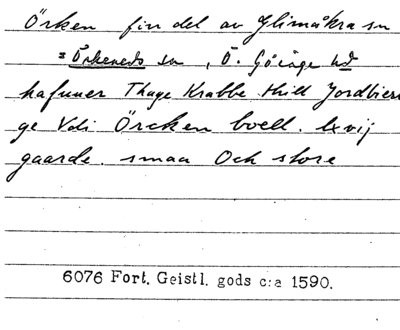 Örken fin del av Glimåkra sn
= Örkeneds sn, Ö. Göinge hd
hafuuer Thage Krabbe thill Jordbierg
ge Vdi Örcken boell. lxvij
gaarde. smaa Och store
6076 Fort. Geistl. gods c:a 1590.